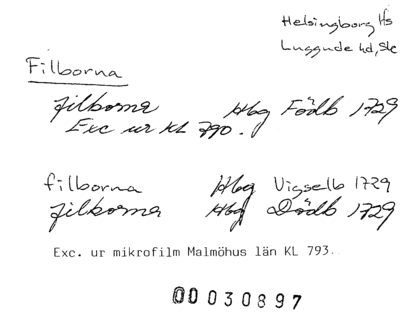 Helsingborg Hs
Luggude hd, Sk
Filborna
filborna Hbg Födb 1729
Exc ur KL 790.
filborna Hbg Vigselb 1729
filborna Hbg Dödb 1729
Exc. ur mikrofilm Malmöhus län KL 793.
00030897